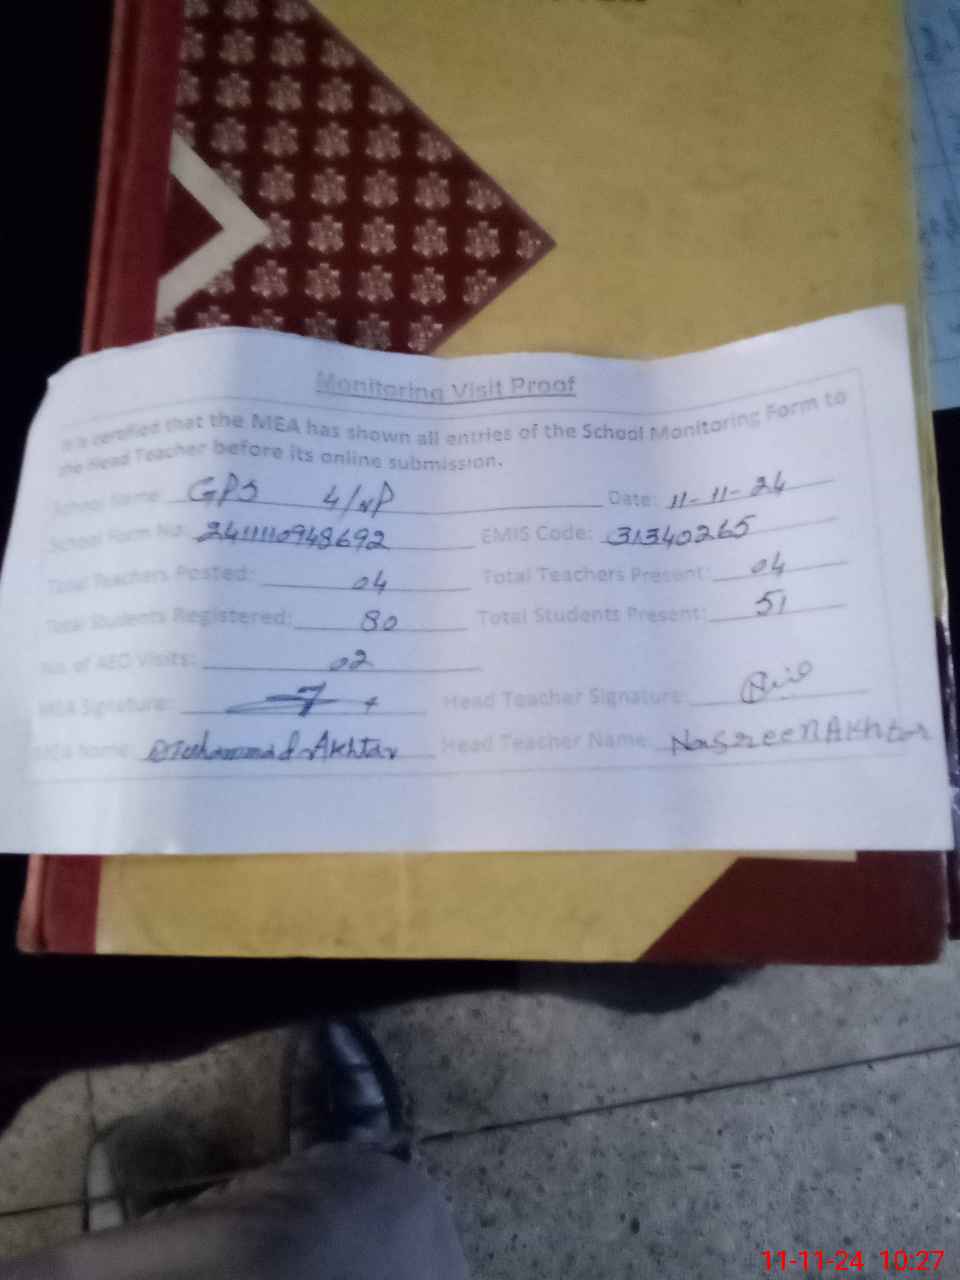 Monitoring Visit Proof
It is certified that the MEA has shown all entries of the School Monitoring Form to
the Head Teacher before its online submission.
School Name: GPS 4/NP Date: 11-11-24
School Form No: 2411110948692 EMIS Code: 31340265
Total Teachers Posted: 04 Total Teachers Present: 04
Total Students Registered: 80 Total Students Present: 51
No. of AEO Visits: 02
MEA Signature: Head Teacher Signature:
MEA Name: Muhammad Akhtar Head Teacher Name: Nasreen Akhtar
11-11-24 10:27